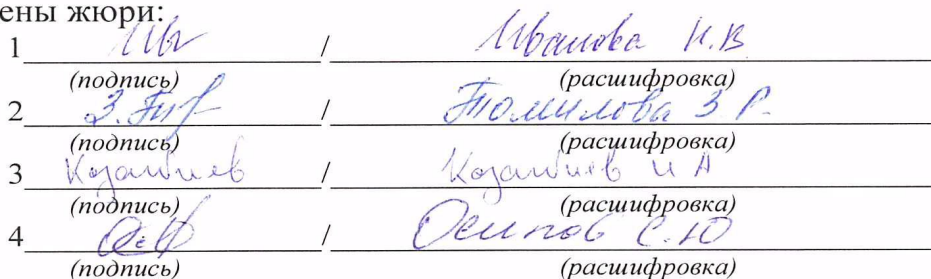 ены жюри:
1 / Иванова Н.В
(подпись) (расшифровка)
2 / Томилова З.Р.
(подпись) (расшифровка)
3 /  И А
(подпись) (расшифровка)
4 / Осипов С.Ю
(подпись) (расшифровка)